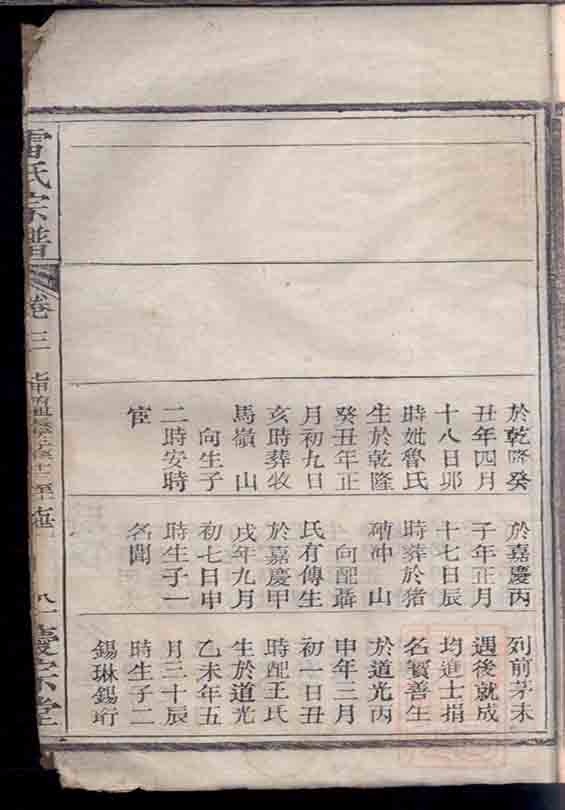 於乾隆癸
丑年四月
十八日卯
時妣魯氏
生於乾隆
癸丑年正
月初九日
亥時葬收
馬嶺 山
向生子
二時安時
宦
於嘉慶丙
子年正月
十七日辰
時葬於猪
冲 山
向配
氏有傳生
於嘉慶甲
戌年九月
初七日申
時生子一
名聞
列前茅未
遇後就成
均進士捐
名寳善生
於道光丙
申年二月
初一日丑
時配王氏
生於道光
乙未年五
月三十辰
時生子二
錫琳錫珩
雷氏宗譜
卷三
八
宗堂